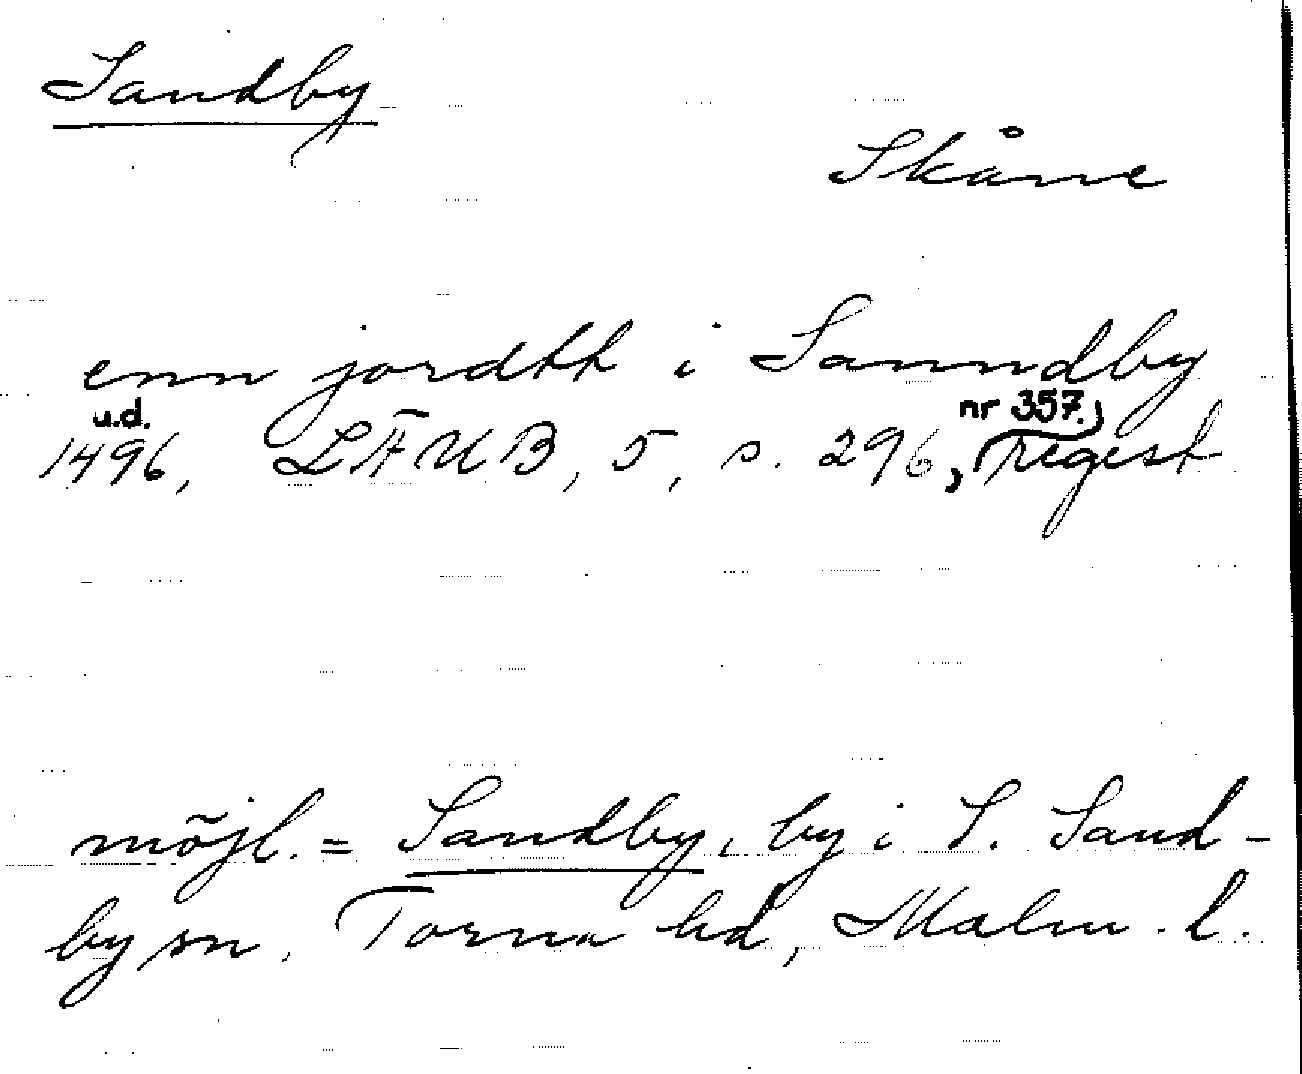 Sandby
Skåne
enn jordtt i Sanndby
u.d. nr 357.)
1496, LÄUB, 5, s. 296, regest
möjl. = Sandby, by i S. Sand-
by sn, Torna hd, Malm. l.